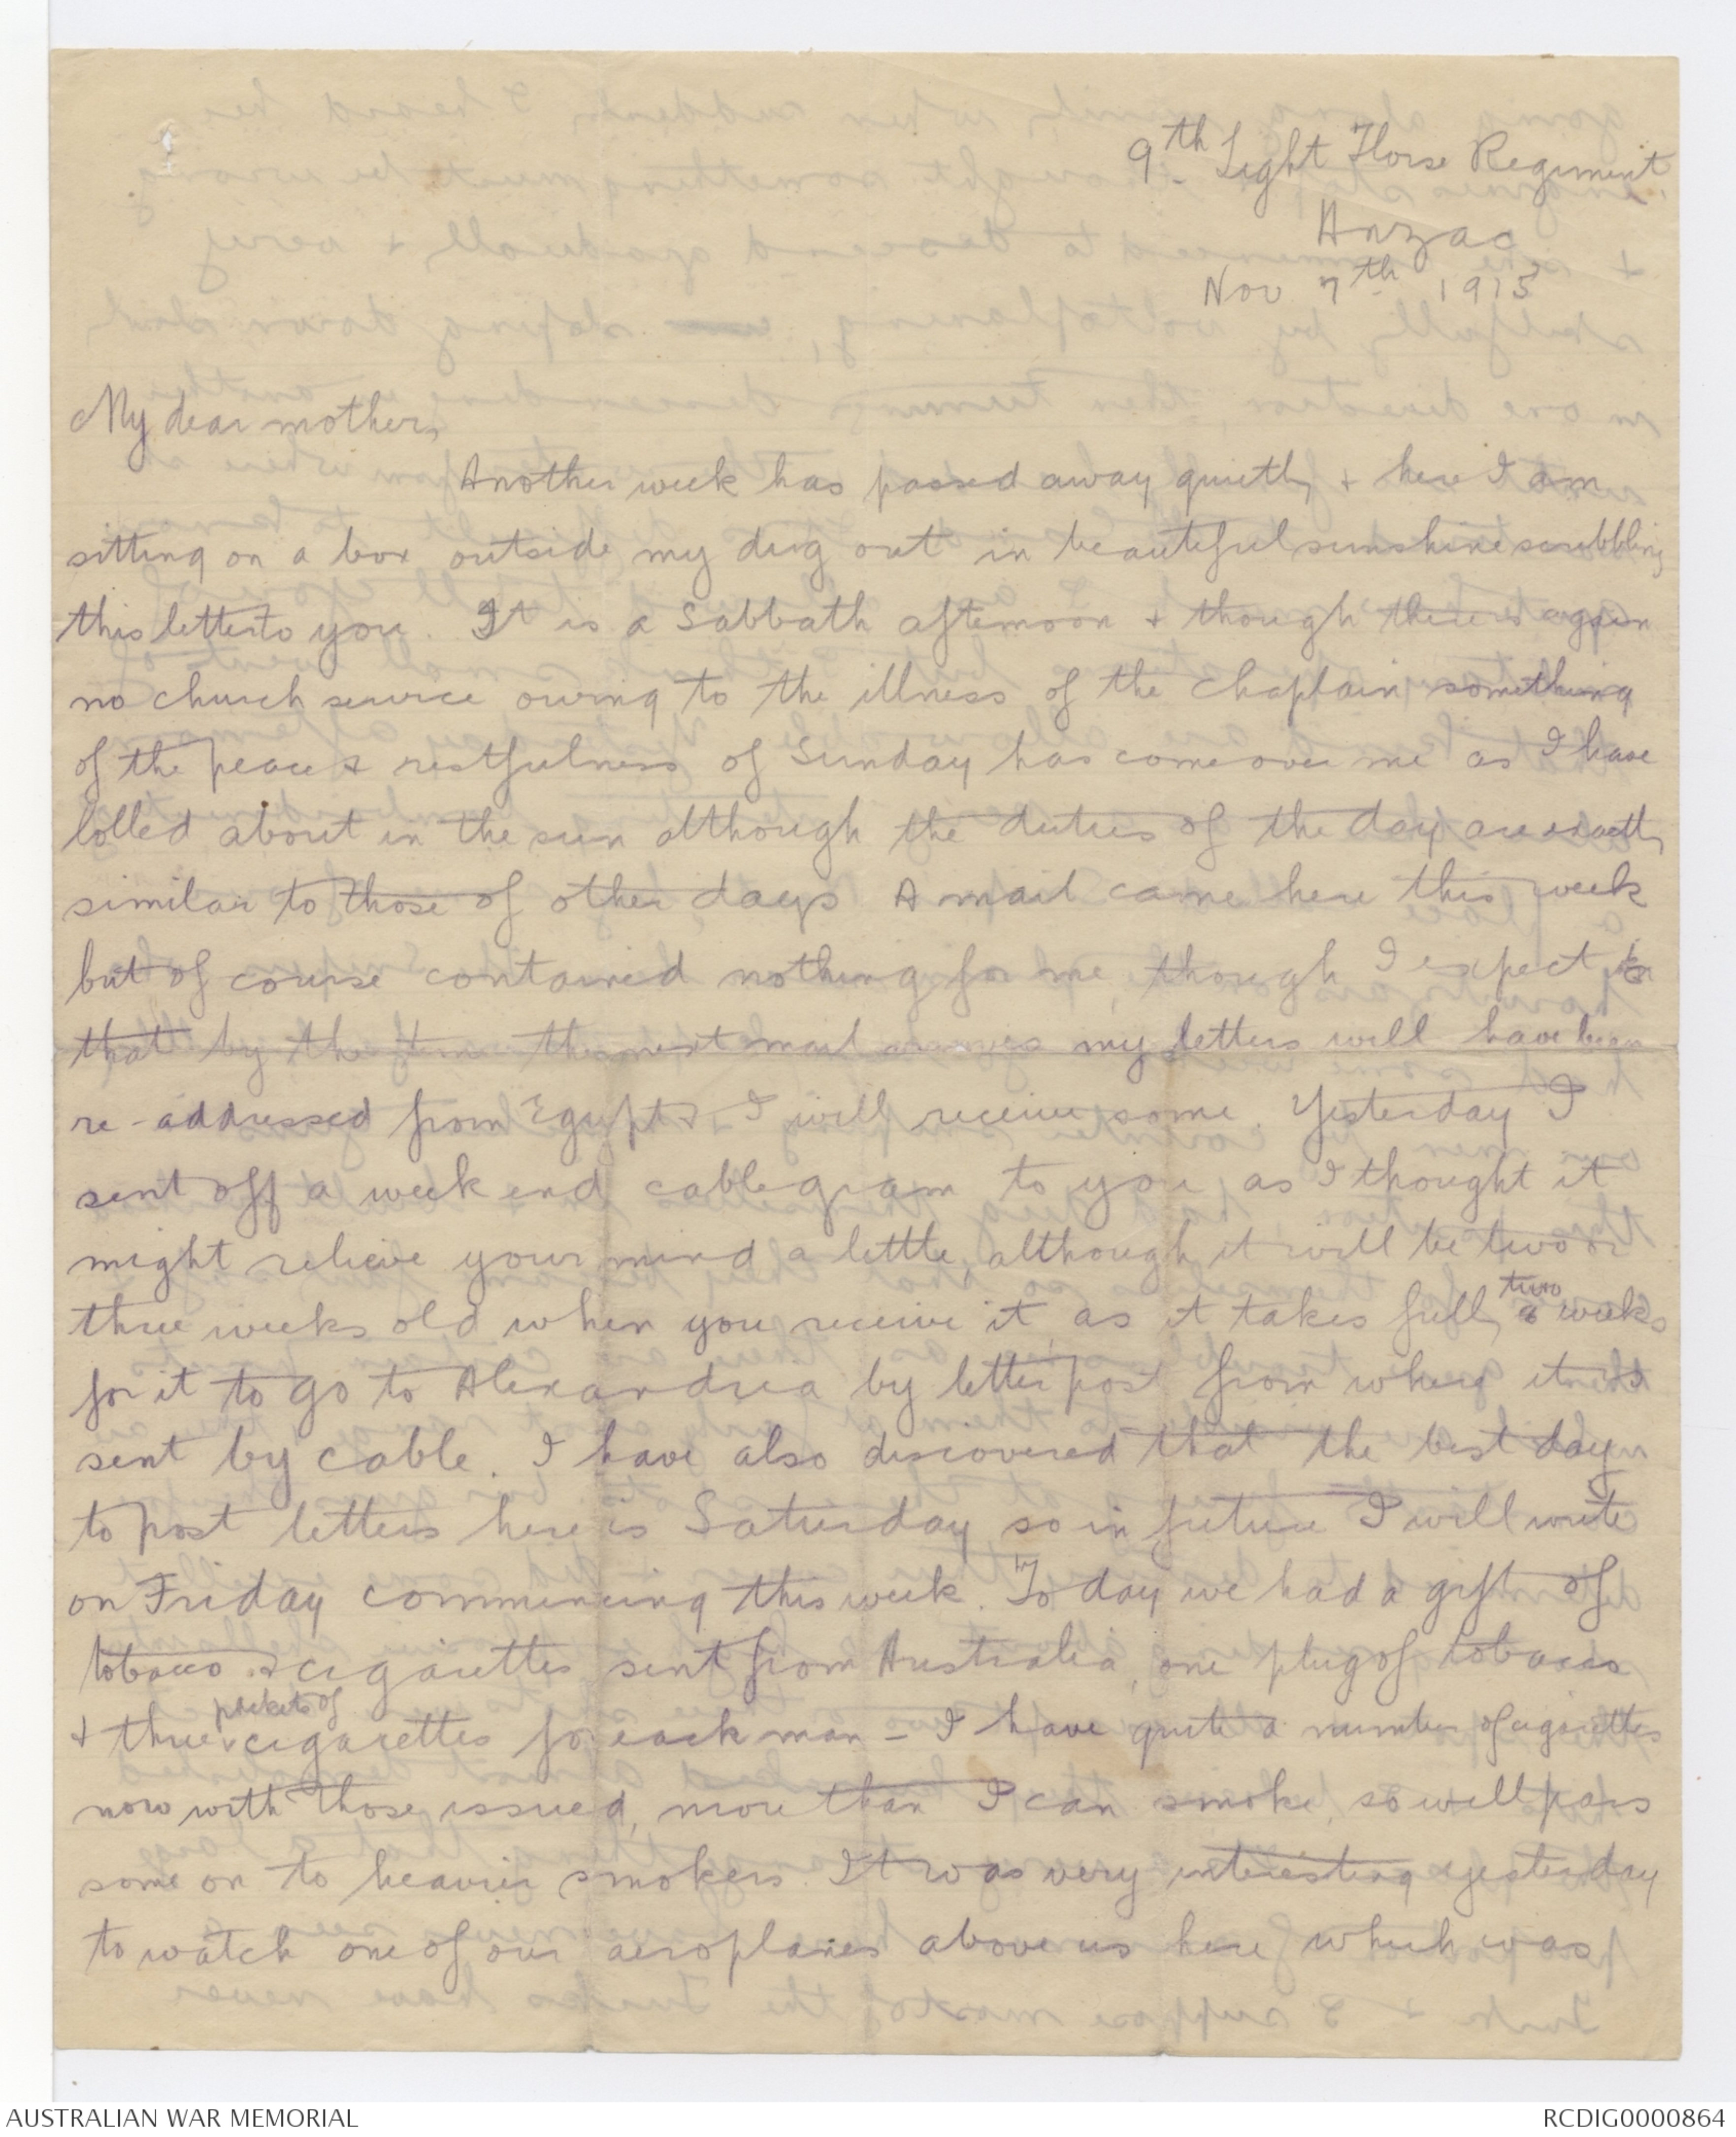 9th Light Horse Regiment
Anzac
Nov 7th 1915
My dear mother,
Another week has passed away quietly & here I am
sitting on a box outside my dug out in beautiful sunshine scribbling
this letter to you. It is a Sabbath afternoon & though there is again
no church service owing to the illness of the chaplain something
of the peace & restfulness of Sunday has come over me as I have
lolled about in the sun although the duties of the day are exactly
similar to those of other days A mail came here this week
but of course contained nothing for me, though I expect
that by the time the next mail arrives my letters will have been
re-addressed from Egypt & I will receive some. Yesterday I
sent off a week end cablegram to you as I thought it
might relieve your mind a little, although it will be two or
three weeks old when you receive it, as it takes fully two weeks
for it to go to Alexandria by letter post from where it is
sent by cable. I have also discovered that the best day
to post letters here is Saturday so in future I will write
on Friday commencing this week. To day we had a gift of
tobacco & cigarettes sent from Australia, one plug of tobacco
& three packets of cigarettes for each man - I have quite a number of cigarettes
now with those issued, more than I can smoke, so will pass
some on to heavier smokers. It was very interesting yesterday
to watch one of our aeroplanes above us here which was
AUSTRALIAN WAR MEMORIAL
RCDIG0000864